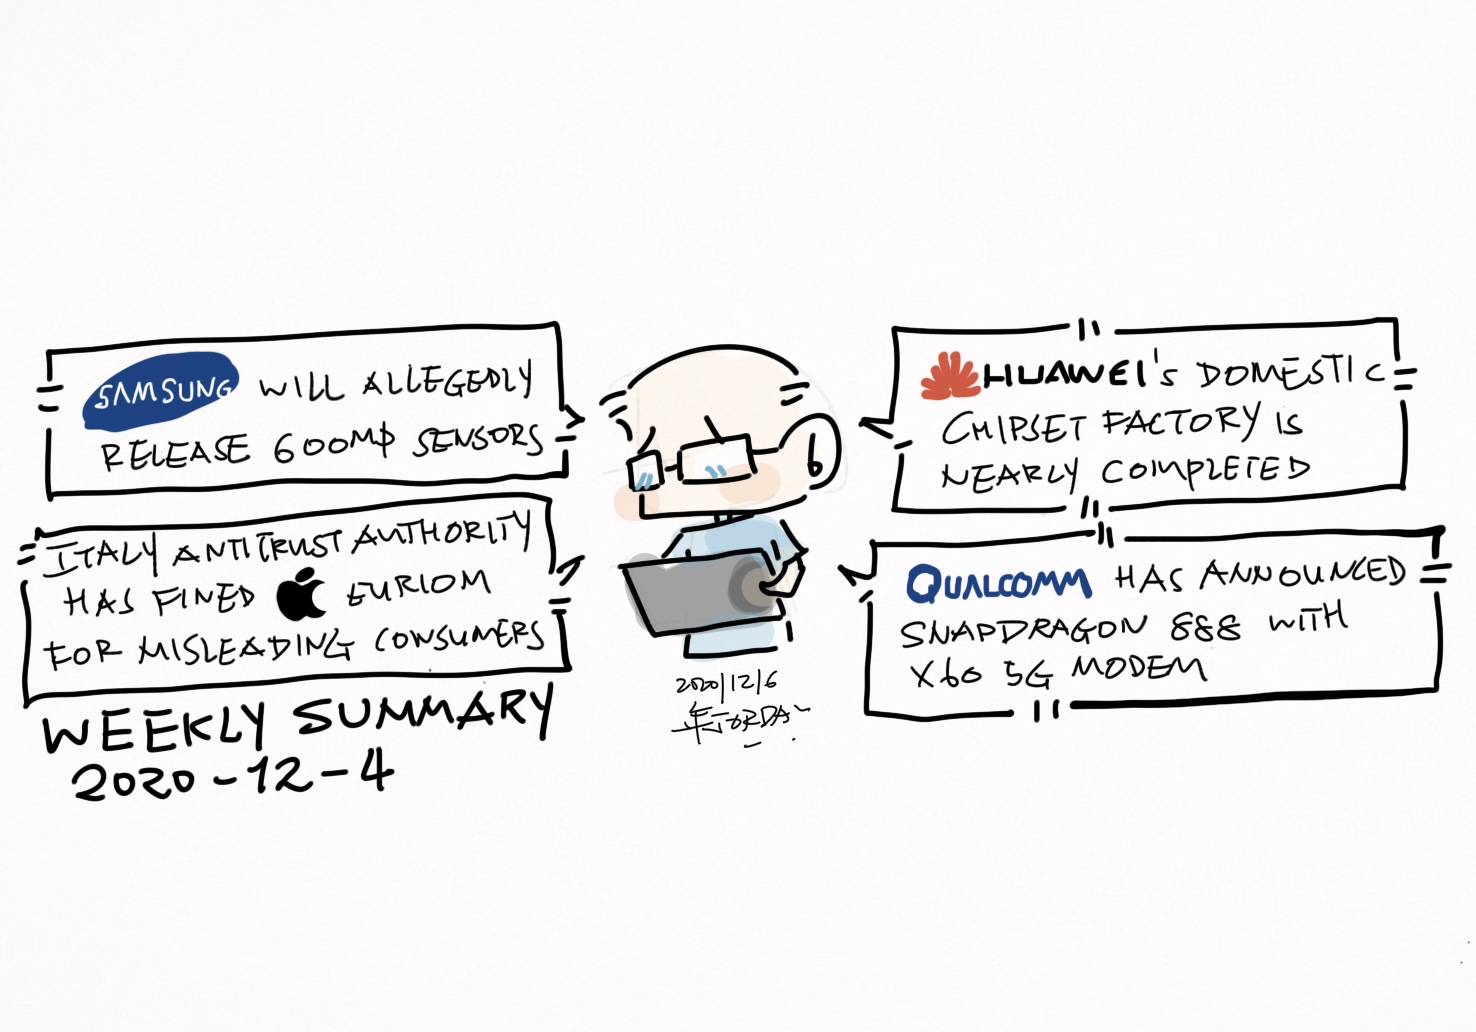 SAMSUNG WILL ALLEGEDLY
RELEASE 600MP SENSORS
ITALY ANTITRUST AUTHORITY
HAS FINED EUR10M
FOR MISLEADING CONSUMERS
WEEKLY SUMMARY
2020-12-4
2020/12/6
HUAWEI's DOMESTIC
CHIPSET FACTORY IS
NEARLY COMPLETED
QUALCOMM HAS ANNOUNCED
SNAPDRAGON 888 WITH
X60 5G MODEM